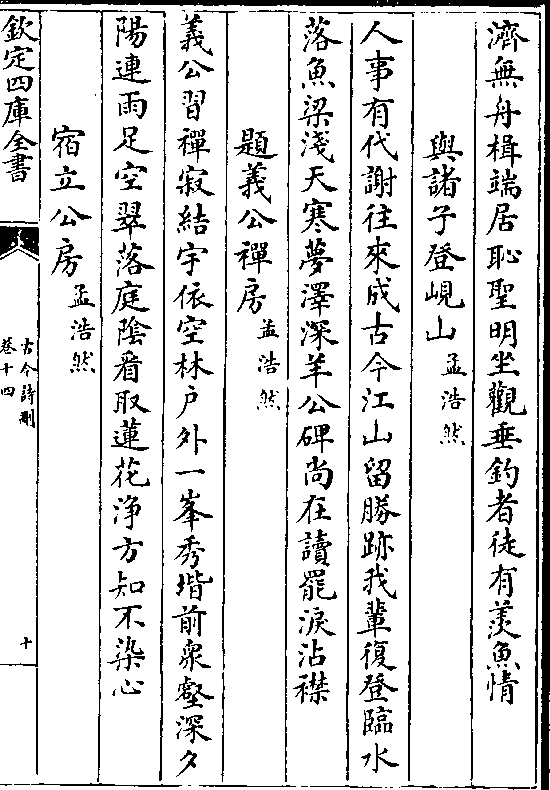 濟無舟楫端居恥聖明坐觀垂釣者徒有羨魚情
與諸子登峴山 孟浩然
人事有代謝往來成古今江山留勝跡我輩復登臨水
落魚梁淺天寒夢澤深羊公碑尚在讀罷淚沾襟
題義公禪房 孟浩然
義公習禪寂結宇依空林户外一峯秀堦前衆壑深夕
陽連雨足空翠落庭陰看取蓮花浄方知不染心
宿立公房 孟浩然
欽定四庫全書
古今詩刪
卷十四
十